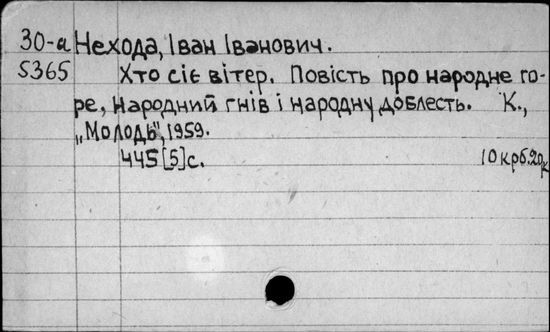 30-а Нехода, Іван Іванович.
5365 Хто сіє вітер. Повість про народне го-
ре, народний гнів і народну доблесть. К.,
„Молодь", 1959.
445[5]с. 10 крб. 20 к